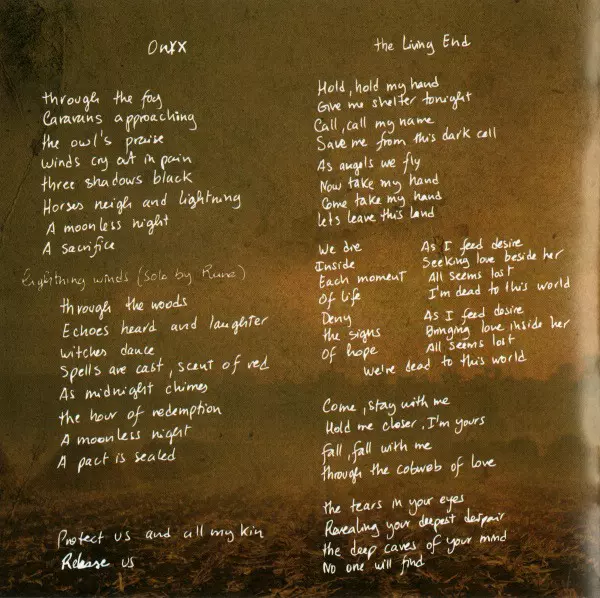 Onxx
through the fog
Caravans approaching
the owl's praise
winds cry out in pain
three shadows black
Horses neigh and lightning
A moonless night
A sacrifice
Lightning winds (solo by Rune)
through the woods
Echoes heard and laughter
witches dance
Spells are cast, scent of red
As midnight chimes
the hour of redemption
A moonless night
A pact is sealed
Protect us and all my kin
Release us
the Living End
Hold, hold my hand
Give me shelter tonight
Call, call my name
Save me from this dark cell
As angels we fly
Now take my hand
Come take my hand
Lets leave this land
We die
Inside
Each moment
Of life
Deny
the signs
Of hope
As I feed desire
Seeking love beside her
All seems lost
I'm dead to this world
As I feed desire
Bringing love inside her
All seems lost
We're dead to this world
Come, stay with me
Hold me closer, I'm yours
fall, fall with me
through the cobweb of love
the tears in your eyes
Revealing your deepest despair
the deep caves of your mind
No one will find